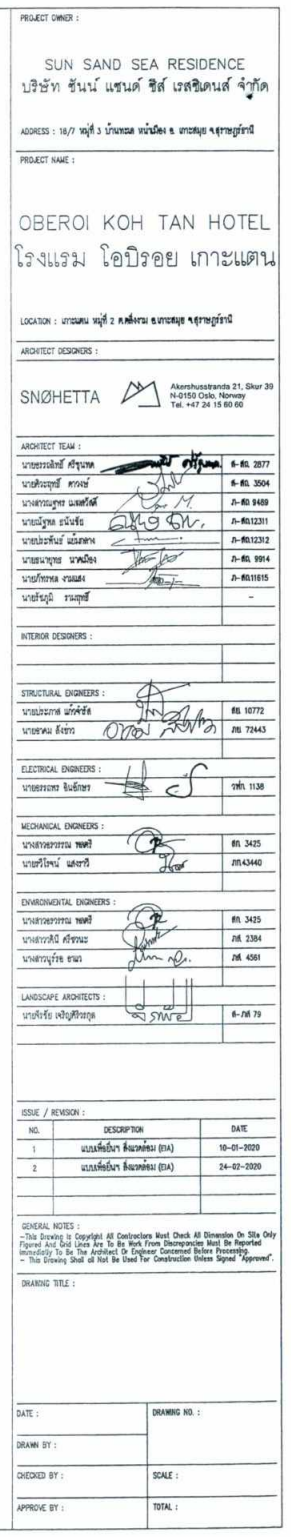 PROJECT OWNER :
SUN SAND SEA RESIDENCE
บริษัท ซันน์ แซนด์ ซีส์ เรสซิเดนส์ จำกัด
ADDRESS : 18/7 หมู่ที่ 3 บ้านทะเล หน้าเมือง อ. เกาะสมุย จ.สุราษฎร์ธานี
PROJECT NAME :
OBEROI KOH TAN HOTEL
โรงแรม โอบิรอย เกาะแตน
LOCATION : เกาะแตน หมู่ที่ 2 ต.ตลิ่งงาม อ.เกาะสมุย จ.สุราษฎร์ธานี
ARCHITECT DESIGNERS :
SNØHETTA
Akershusstranda 21, Skur 39
N-0150 Oslo, Norway
Tel. +47 24 15 60 60
ARCHITECT TEAM :
ส-สถ. 2877
ส-สถ. 3504
ภ-สถ. 9489
นายณัฐพล ธนันชัย ภ-สถ.12311
นายประพันธ์ ภ-สถ.12312
นายธนายุทธ นาคเมือง ภ-สถ. 9914
นายภัทรพล งามแสง ภ-สถ.11615
นายรัชภูมิ รามฤทธิ์ -
INTERIOR DESIGNERS :
STRUCTURAL ENGINEERS :
นายประภาส สย. 10772
นายอาคม สังข์าว ภย 72443
ELECTRICAL ENGINEERS :
นายอรรถพร อินอักษร วฟก. 1138
MECHANICAL ENGINEERS :
สก. 3425
นายวิโรจน์ แสงราวี ภก.43440
ENVIRONMENTAL ENGINEERS :
สก. 3425
ภส. 2384
ภส. 4561
LANDSCAPE ARCHITECTS :
นายจิรชัย ส-ภส 79
ISSUE / REVISION :
NO. DESCRIPTION DATE
1 แบบเพื่อยื่นฯ สิ่งแวดล้อม (EIA) 10-01-2020
2 แบบเพื่อยื่นฯ สิ่งแวดล้อม (EIA) 24-02-2020
GENERAL NOTES :
-This Drawing is Copyright All Contractors Must Check All Dimension On Site Only
Figured And Grid Lines Are To Be Work From Discrepancies Must Be Reported
Immedially To Be The Architect Or Engineer Concerned Before Processing.
- This Drawing Shall all Not Be Used For Construction Unless Signed "Approved".
DRAWING TITLE :
DATE : DRAWING NO. :
DRAWN BY :
CHECKED BY : SCALE :
APPROVE BY : TOTAL :